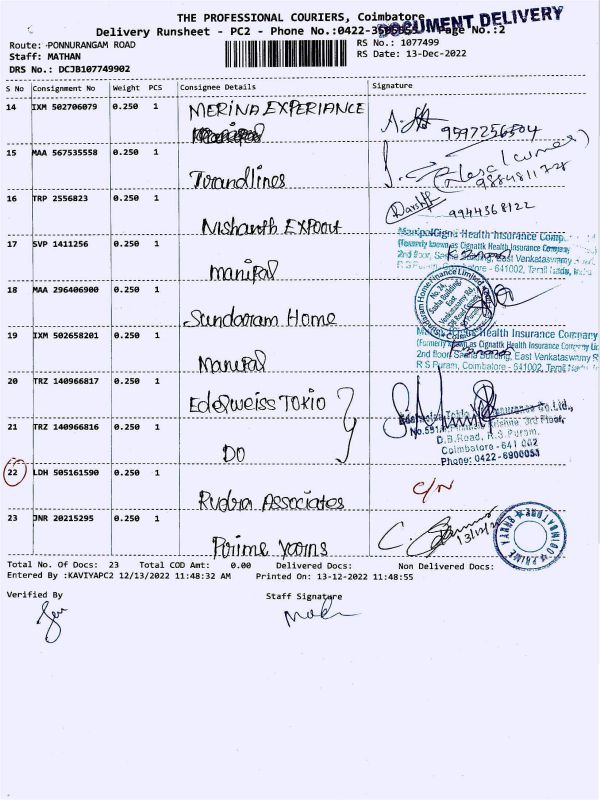 THE PROFESSIONAL COURIERS, Coimbatore
DOCUMENT DELIVERY
Delivery Runsheet - PC2 - Phone No.:0422- Page No.:2
Route: PONNURANGAM ROAD RS No.: 1077499
Staff: MATHAN RS Date: 13-Dec-2022
DRS No.: DCJB107749902
S No Consignment No Weight PCS Consignee Details Signature
14 IXM 502706079 0.250 1 MERINA EXPERIANCE
15 MAA 567535558 1 0.250 Torandlines
16 TRP 2556823 0.250 1 Nishanth Export Darshh 9944368122
17 SVP 1411256 0.250 1 manipal
ManipalCigna Health Insurance Comp
(formerly known as Cignattk Health Insurance Company
2nd floor, East Venkataswamy
Coimbatore - 641002, Tamil Nadu
18 MAA 296406900 0.250 1 Sundaram Home
Sundaram Home Finance Limited
No. 24,
Sasha Building,
East
Venkatasamy Rd,
19 IXM 502658201 0.250 1 Manipal
Health Insurance Company
(Formerly known as Cignattk Health Insurance Company
2nd floor, Sasha Building, East Venkataswamy R
R S Puram, Coimbatore - 641002, Tamil Nadu
20 TRZ 140966817 0.250 1 Edelweiss TOKIO
21 TRZ 140966816 0.250 1 DO
Edelweiss Tokio Insurance Co.Ltd.,
3rd Floor,
D.B.Road, R.S.Puram,
Coimbatore - 641 002
Phone: 0422-6900053
22 LDH 505161590 0.250 1 Rudra Associates C/N
23 JNR 20215295 0.250 1 Prime yarns
PRIME YARNS COIMBATORE
Total No. Of Docs: 23 Total COD Amt: 0.00 Delivered Docs: Non Delivered Docs:
Entered By :KAVIYAPC2 12/13/2022 11:48:32 AM Printed On: 13-12-2022 11:48:55
Verified By Staff Signature